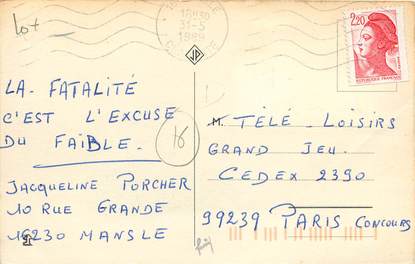 lot
16H30
31-5
1989
JP
2,20
REPUBLIQUE FRANÇAISE
LA FATALITÉ
C'EST L'EXCUSE
DU FAIBLE.
JACQUELINE PORCHER
10 RUE GRANDE
16230 MANSLE
16
M. TÉLÉ-LOISIRS
GRAND JEU
CEDEX 2390
99239 PARIS CONCOURS